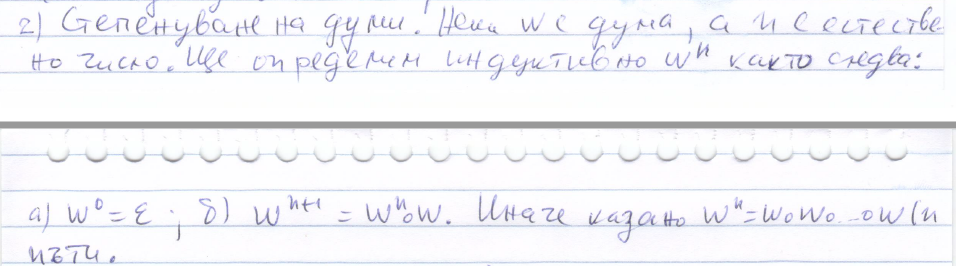 2) Степенуване на думи. Нека w е дума, а n е естестве
но число. Ще определим индуктивно wⁿ както следва:
а) w⁰ = ε ; б) wⁿ⁺¹ = wⁿ∘w. Иначе казано wⁿ = w∘w∘...∘w (n
пъти.